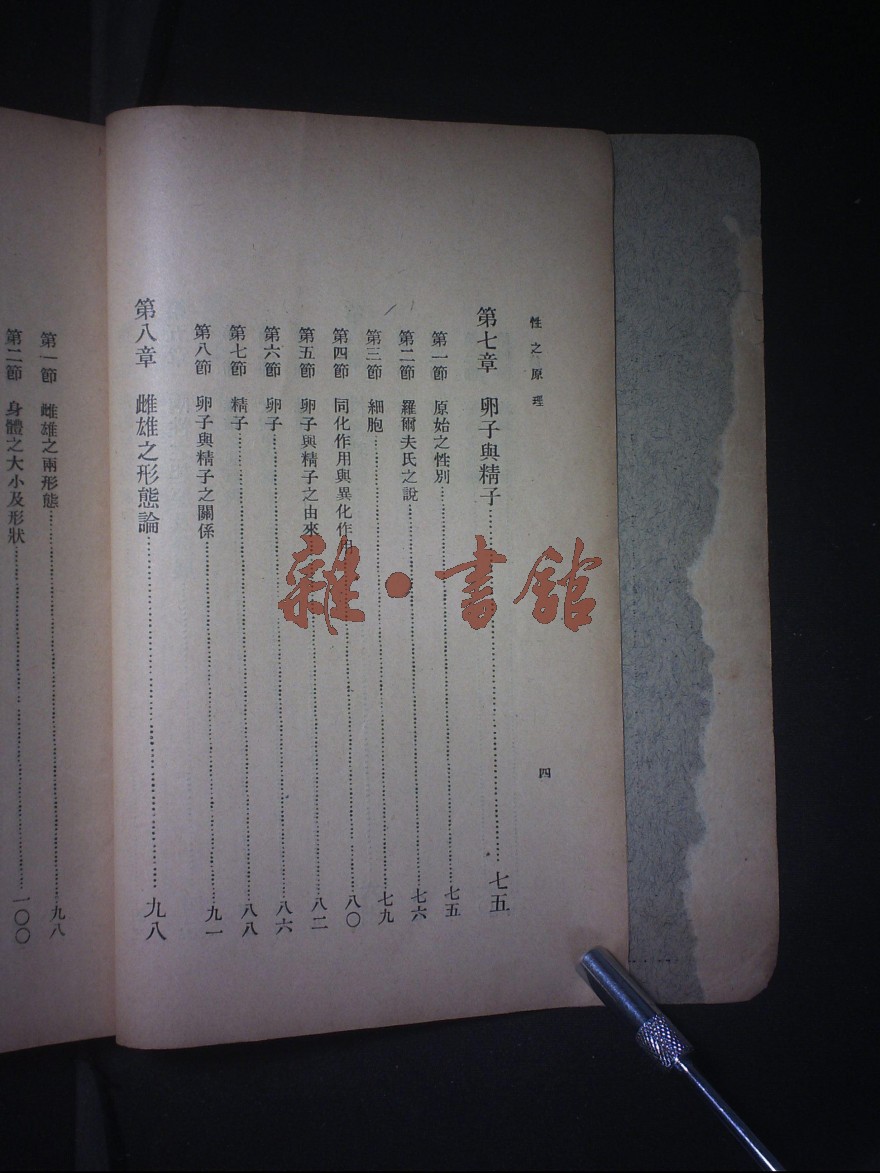 性之原理
四
第七章 卵子與精子……七五
第一節 原始之性別……七五
第二節 羅爾夫氏之說……七六
第三節 細胞……七九
第四節 同化作用與異化作用……八〇
第五節 卵子與精子之由來……八二
第六節 卵子……八六
第七節 精子……八八
第八節 卵子與精子之關係……九一
第八章 雌雄之形態論……九八
第一節 雌雄之兩形態……九八
第二節 身體之大小及形狀……一〇〇
雜・書館